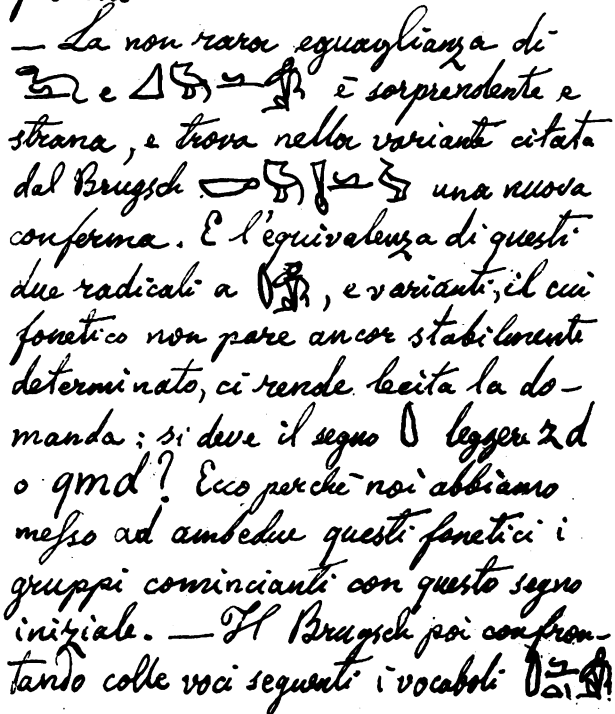 — La non rara eguaglianza di
e è sorprendente e
strana, e trova nella variante citata
dal Brugsch una nuova
conferma. E l'equivalenza di questi
due radicali a , e varianti, il cui
fonetico non pare ancor stabilmente
determinato, ci rende lecita la do–
manda: si deve il segno leggere zd
o qmd? Ecco perchè noi abbiamo
messo ad ambedue questi fonetici i
gruppi comincianti con questo segno
iniziale. — Il Brugsch poi confron–
tando colle voci seguenti i vocaboli